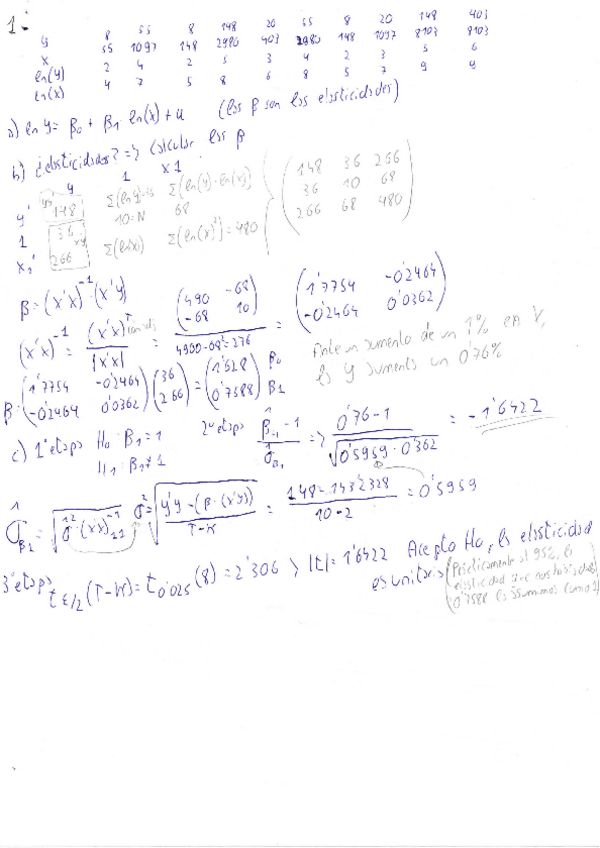 1.-
y 8 55 8 148 20 55 8 20 148 403
x 55 1097 148 2980 403 2980 148 1097 8103 8103
ln(y) 2 4 2 5 3 4 2 3 5 6
ln(x) 4 7 5 8 6 8 5 7 9 9
a) ln y = β0 + β1 ln(x) + u (los β son las elasticidades)
b) ¿elasticidades? => calcular los β
y 1 x1
y' 148 Σ(ln y)=36 Σ(ln(y)·ln(x))
1 36 10=N 68
x2' 266 Σ(ln x) Σ(ln(x)²)=480
148 36 266
36 10 68
266 68 480
β=(x'x)⁻¹·(x'y)
(x'x)⁻¹ = (x'x)ᵀ / |x'x| = (490 -68 / -68 10) / 4900-68²=276 = (1'7754 -0'2464 / -0'2464 0'0362)
β=(1'7754 -0'2464 / -0'2464 0'0362)(36 / 266) = (1'628 / 0'7588) β0 β1
Ante un aumento de un 1% en X,
la y aumenta un 0'76%
c) 1ª etapa H0: β1=1
H1: β1≠1
2ª etapa β̂1-1 / σ̂β1 => 0'76-1 / √0'5959·0'362 = -1'6422
σ̂β1=√σ̂²·(x'x)⁻¹ σ̂=√y'y-(β·(x'y)) / T-K = 148-143'2328 / 10-2 = 0'5959
3ª etapa tε/2(T-K)=t0'025(8)=2'306 > |t|=1'6422 Acepto H0, la elasticidad
es unitaria (Prácticamente al 95%, la
elasticidad que nos ha salido
0'7588 la asumimos como 1)